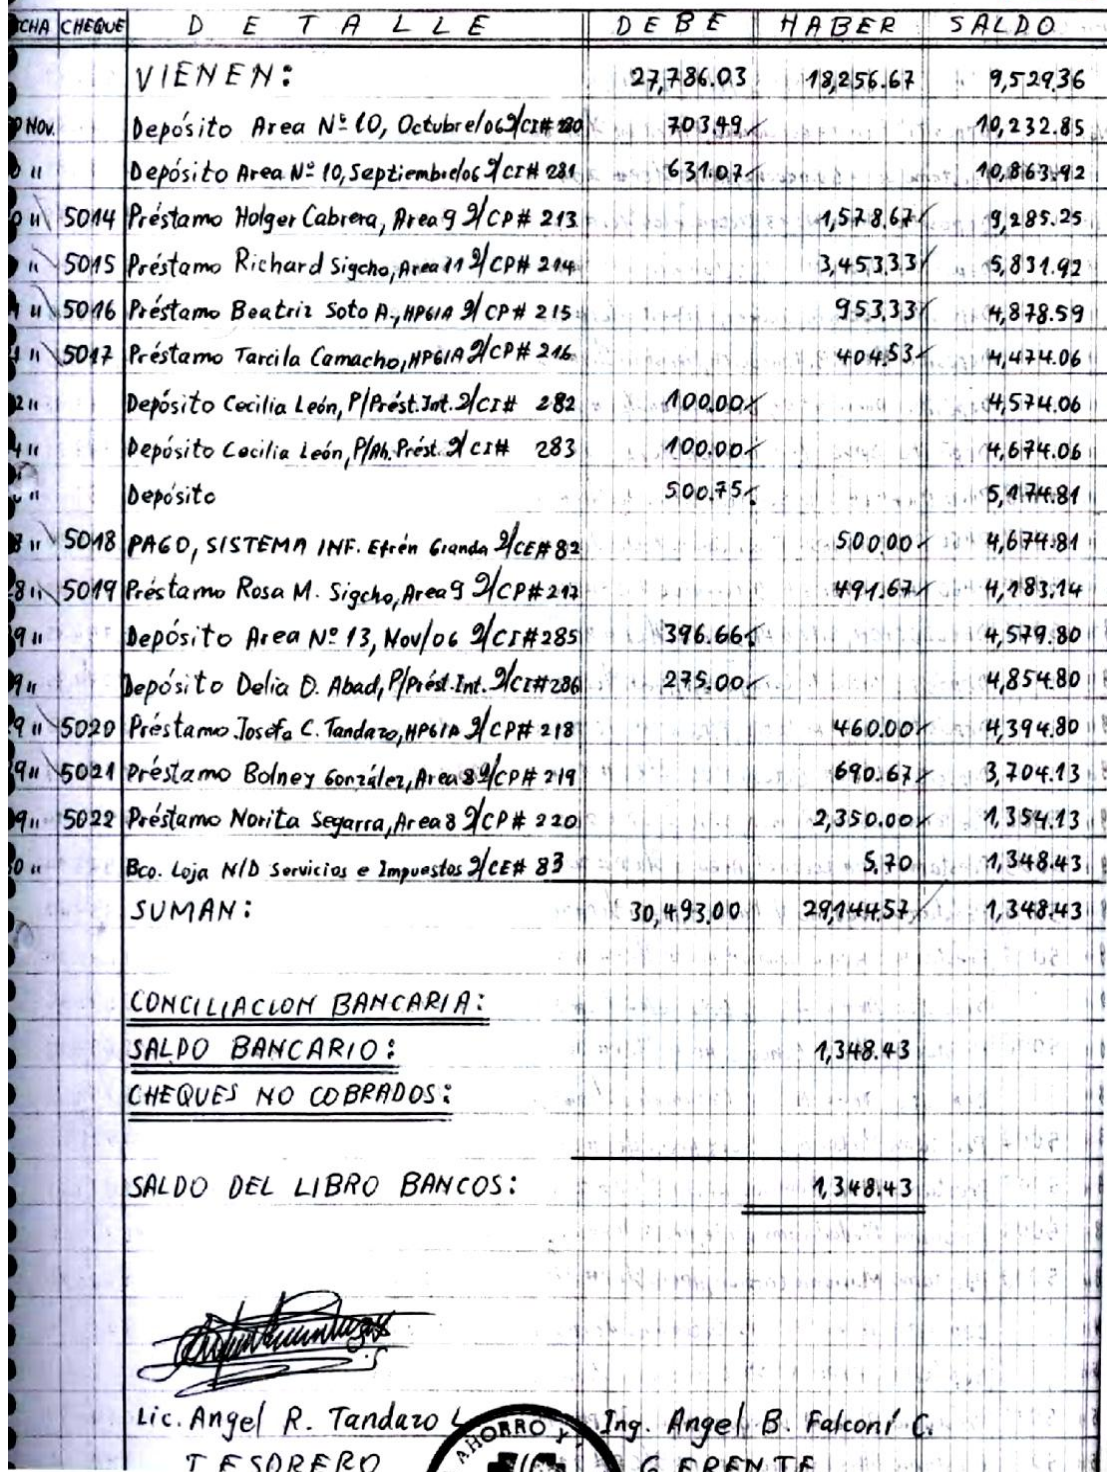 CHA CHEQUE DETALLE DEBE HABER SALDO
VIENEN: 27,786.03 18,256.67 9,529.36
Nov. Depósito Area Nº 10, Octubre/06 S/CI# 280 703.49 10,232.85
" Depósito Area Nº 10, Septiembre/06 S/CI# 281 631.07 10,863.92
" 5014 Préstamo Holger Cabrera, Area 9 S/CP# 213 1,578.67 9,285.25
" 5015 Préstamo Richard Sigcho, Area 11 S/CP# 214 3,453.33 5,831.92
" 5016 Préstamo Beatriz Soto A., HPGIA S/CP# 215 953.33 4,878.59
" 5017 Préstamo Tarcila Camacho, HPGIA S/CP# 216 404.53 4,474.06
2 " Depósito Cecilia León, P/Prést. Int. S/CI# 282 100.00 4,574.06
4 " Depósito Cecilia León, P/Ah. Prést. S/CI# 283 100.00 4,674.06
" Depósito 500.75 5,174.81
8 " 5018 PAGO, SISTEMA INF. Efrén Granda S/CE# 82 500.00 4,674.81
8 " 5019 Préstamo Rosa M. Sigcho, Area 9 S/CP# 217 491.67 4,183.14
9 " Depósito Area Nº 13, Nov/06 S/CI# 285 396.66 4,579.80
9 " Depósito Delia D. Abad, P/Prést. Int. S/CI# 286 275.00 4,854.80
9 " 5020 Préstamo Josefa C. Tandazo, HPGIA S/CP# 218 460.00 4,394.80
9 " 5021 Préstamo Bolney González, Area 8 S/CP# 219 690.67 3,704.13
9 " 5022 Préstamo Norita Segarra, Area 8 S/CP# 220 2,350.00 1,354.13
0 " Bco. Loja N/D Servicios e Impuestos S/CE# 83 5.70 1,348.43
SUMAN: 30,493.00 29,144.57 1,348.43
CONCILIACION BANCARIA:
SALDO BANCARIO: 1,348.43
CHEQUES NO COBRADOS:
SALDO DEL LIBRO BANCOS: 1,348.43
Lic. Angel R. Tandazo L Ing. Angel B. Falconí C.
AHORRO Y
TESORERO GERENTE